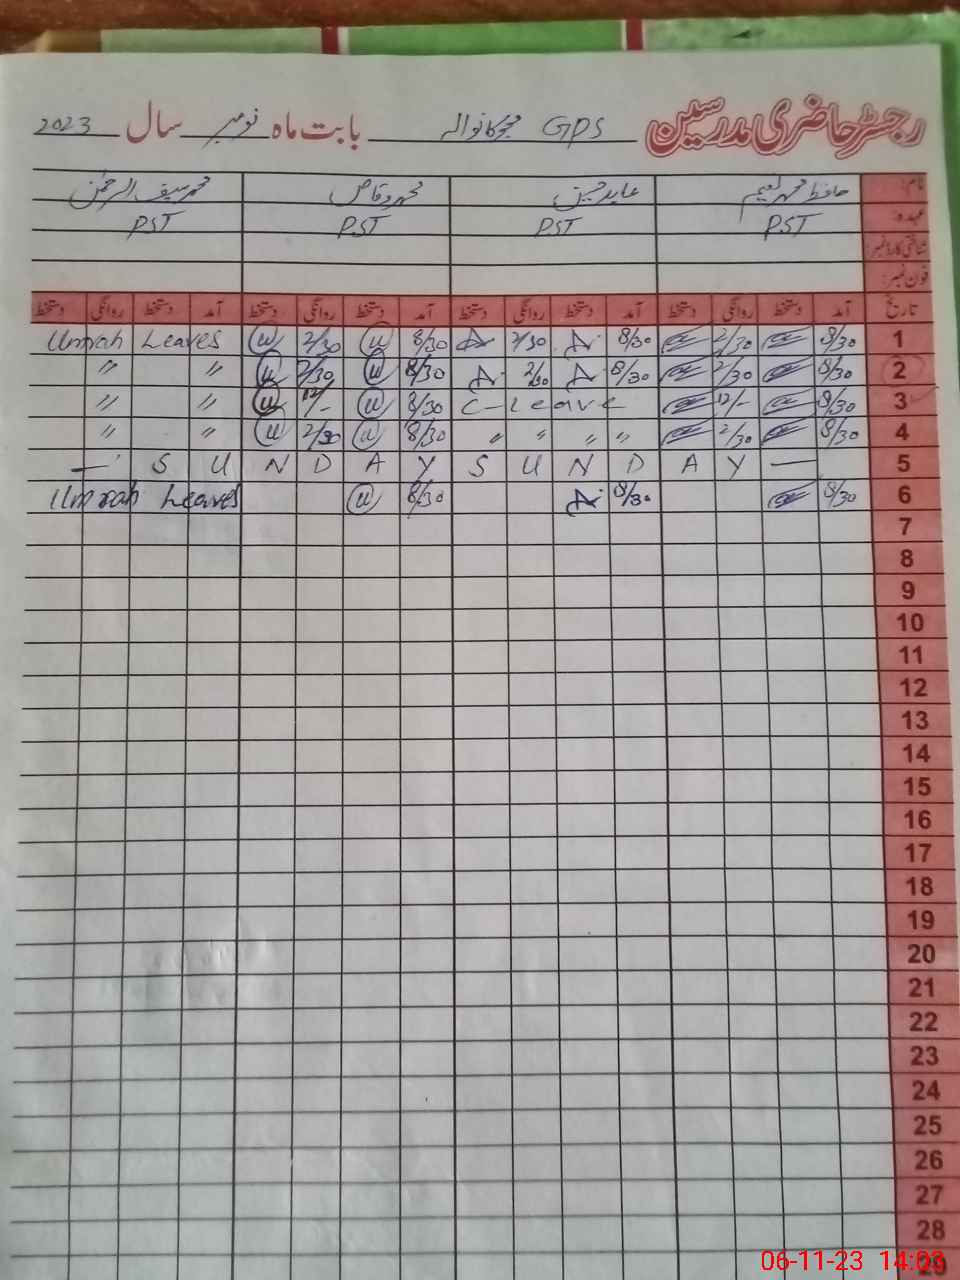 رجسٹر حاضری مدرسین GPS بابت ماہ نومبر سال 2023
نام: حافظ محمد نعیم عابد حسین محمد وقاص محمد سیف الرحمٰن
عہدہ: PST PST PST PST
شناختی کارڈ نمبر:
فون نمبر:
تاریخ آمد دستخط روانگی دستخط آمد دستخط روانگی دستخط آمد دستخط روانگی دستخط آمد دستخط روانگی دستخط
Umrah Leaves 2/30 8/30 2/30 8/30 2/30 8/30 1
" " 2/30 8/30 2/30 8/30 2/30 8/30 2
" " 12/- 8/30 C-Leave 12/- 8/30 3
" " 2/30 8/30 " " " " 2/30 8/30 4
— S U N D A Y S U N D A Y — 5
Umrah Leaves 8/30 8/30 8/30 6
7
8
9
10
11
12
13
14
15
16
17
18
19
20
21
22
23
24
25
26
27
28
29
06-11-23 14:03